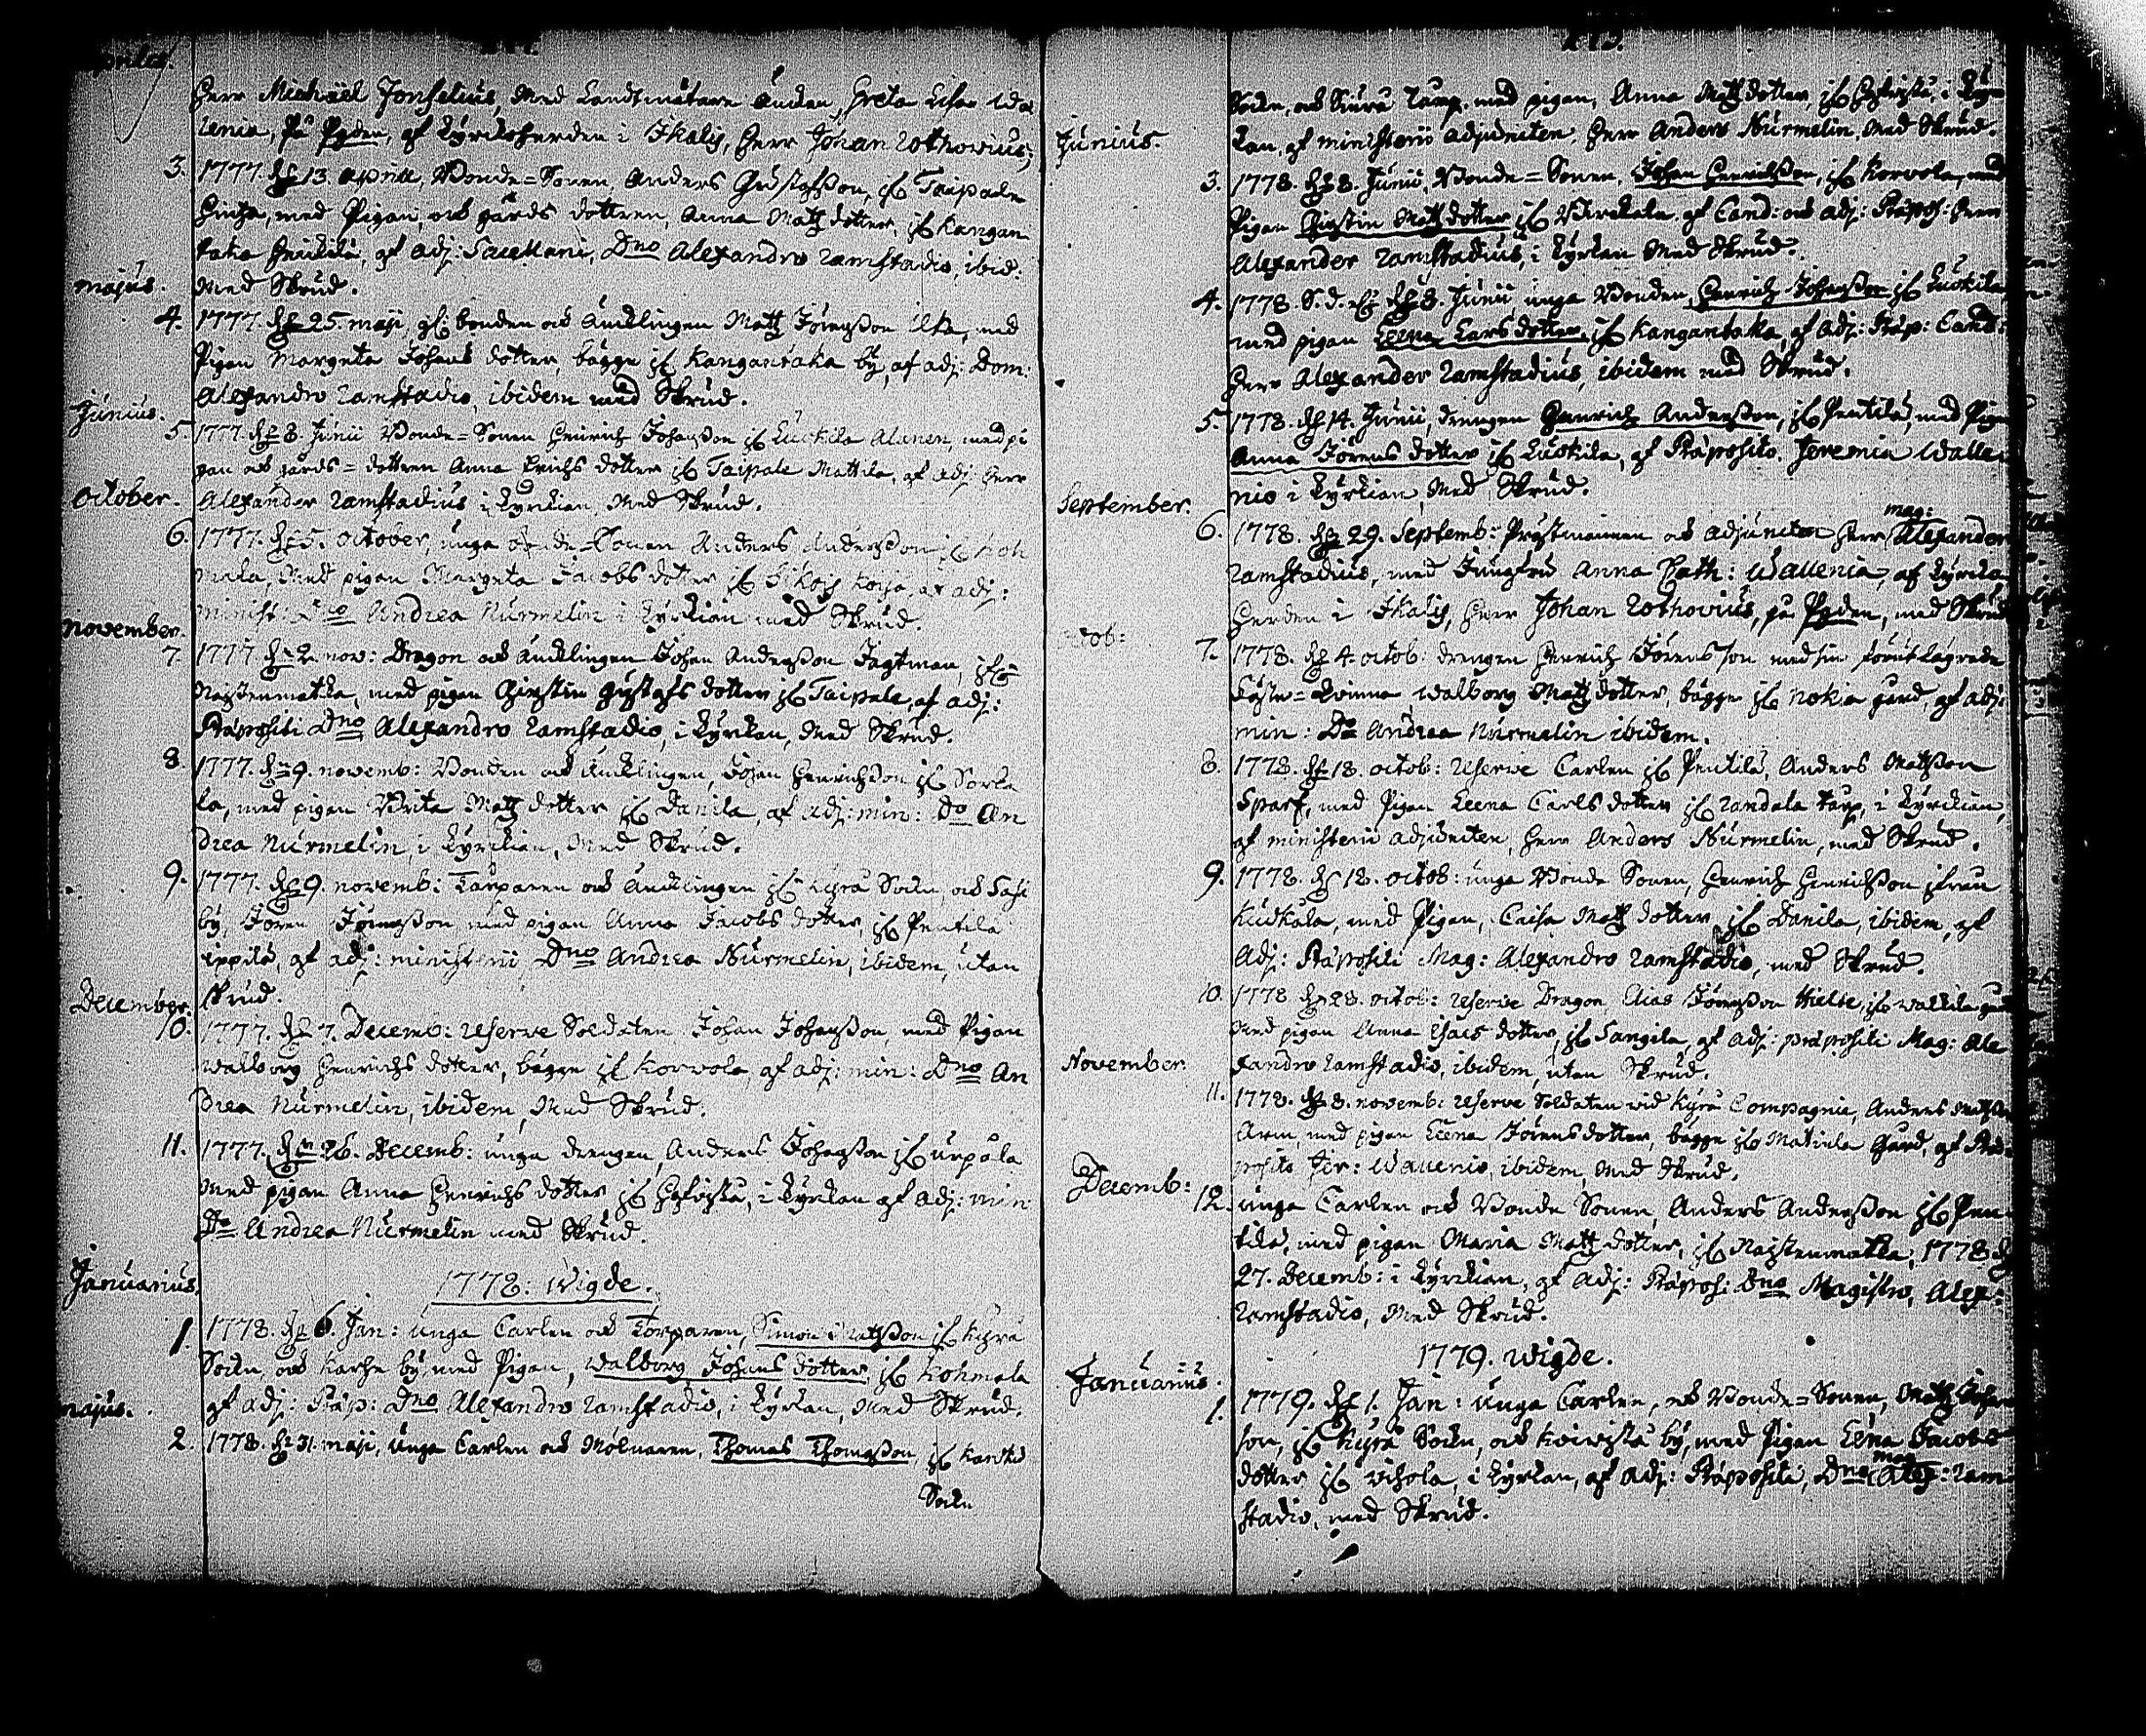 Aprilis.
Herr Michaël Jonselius, med Landtmätare Enckan, Greta Lisa Wal
lenia, på Pyden, af Kyrckoherden i Ikalis, Herr Johan Rothovius;
3. 1777. d. 13. aprill, Bonde=Sonen, Anders Gustafsson, if. Taipale
med Pigan, och gårds dottren, Anna Matts dotter, if. Kangan
taka Heickilä, af adj: Sacellani, Dno Alexandro Ramstadio, ibid:
majus.
med Skrud.
4. 1777. d. 25. maji, if. bonden och Äncklingen Matts Jöransson Ilka, med
Pigan Margeta Johans dotter, bägge if. Kangantaka by, af adj: Dom:
Alexandro Ramstadio, ibidem med Skrud.
Junius.
5. 1777. d. 8. Junii Bonde=Sonen Heinrich Johansson if. Luotila Alanen, med pi
gan och gårds=dottren Anna Erichs dotter if. Taipale Mattila, af adj: Herr
October.
Alexander Ramstadius i Kyrckian, med Skrud.
6. 1777. d. 5. October, unga bonde=Sonen Anders Andersson if. Koh
mala, med pigan Margeta Jacobs dotter if. af adj:
minist: Dno Andrea Nurmelin i Kyrckian med Skrud.
November.
7. 1777 d. 2. nov: Dragon och Äncklingen Johan Andersson Jagtman, if.
Naistenmatka, med pigan Christin Gustafs dotter if. Taipale, af adj:
Præpositi Dno Alexandro Ramstadio, i Kyrkan, med Skrud.
8. 1777. d. 9. novemb: Bonden och Äncklingen, Johan Henrichsson if. Sorka
la, med pigan Brita Matts dotter if. Danila, af adj: min: Do An
drea Nurmelin, i Kyrckian, med Skrud.
9. 1777. d. 9. novemb: Torparen och Äncklingen if. Kyrå Sockn, och
by, Jören Jöransson med pigan Anna Jacobs dotter, if. Pentilä
af adj: ministerii Dno Andrea Nurmelin, ibidem, utan
December.
skrud.
10. 1777. d. 7. Decemb: reserve Soldaten Johan Johansson, med Pigan
Walborg Henrichs dotter, bägge if. Korvola, af adj: min: Dno An
drea Nurmelin, ibidem, med Skrud.
11. 1777. d. 26. Decemb: unga drengen, Anders Johansson if. urpola
med pigan Anna Henrichs dotter if. i Kyrkan af adj: min:
Do Andrea Nurmelin med Skrud.
Januarius.
1778: Wigde.
1. 1778. d. 6. Jan: unga Carlen och Torparen, Simon Mattsson if. Kyrå
Sockn, och Karhe by, med Pigan, Walborg Johans dotter, if. Kohmala
af adj: Præp: Dno Alexandro Ramstadio, i Kyrkan, med Skrud.
majus.
2. 1778. d. 31. maji, unga Carlen och Mölnaren, Thomas Thomasson, if.
Sockn
Sockn, och med pigan, Anna Matts dotter, if. i Kyr
kan, af ministerii adjuncten, Herr Anders Nurmelin, med Skrud.
Junius.
3. 1778. d. 8. Junii, Bonde=Sonen, Johan Henrichsson, if. Korvola, med
Pigan Christin Matts dotter if. af Cand: och adj: Præpos: Herr
Alexander Ramstadius, i Kyrkan med Skrud.
4. 1778. S. d. d. 8. Junii unga Bonden, Henrich Johansson if. Luotila
med pigan Leena Lars dotter, if. Kangantaka, af adj: Præp: Cand:
Herr Alexander Ramstadius, ibidem med Skrud.
5. 1778. d. 14. Junii, drengen Henrich Andersson, if. Pentilä, med Pigan
Anna Jörens dotter if. Luotila, af Præposito. Jeremia Walle
nio i Kyrkian, med Skrud.
September.
6. 1778. d. 29. Septemb: Prästmannen och adjuncten Herr mag: Alexander
Ramstadius, med Jungfru Anna Cath: Wallenia, af Kyrcko
herden i Ikalis, Herr Johan Rothovius, på Pyden, med Skrud
Octob:
7. 1778. d. 4. octob: drengen Henrich Jörensson med sin förut lägrade
Fäste=Qvinna, Walborg Matts dotter, bägge if. Nokia gård, af adj:
min: Do Andrea Nurmelin ibidem.
8. 1778. d. 18. octob: reserve Carlen if. Pentilä, Anders Mattsson
Sparf, med Pigan Leena Carls dotter if. i Kyrckian,
af ministerii adjuncten, Herr Anders Nurmelin, med Skrud.
9. 1778. d. 18. octob: unga Bonde Sonen, Henrich Henrichsson ifrån
Kulkula, med Pigan, Caisa Matts dotter if. Danila, ibidem, af
Adj: Præpositi Mag: Alexandro Ramstadio, med Skrud.
10. 1778 d. 28. octob: reserve Dragon, Elias Jöransson Hielte, if.
med pigan Anna Isacs dotter, if. Sangila, af adj: præpositi Mag: Ale
xandro Ramstadio, ibidem, utan Skrud.
November.
11. 1778. d. 8. novemb: reserve Soldaten vid Kyrå Compagnie, Anders Mattsson
Arm, med pigan Leena Jörens dotter, bägge if. Gård, af Præ
posito Jer: Wallenio, ibidem, med Skrud.
Decemb:
12. unga Carlen och Bonde Sonen, Anders Andersson if. Pen
tilä, med pigan Maria Matts dotter, if. Naistenmatka, 1778. d.
27. Decemb: i Kyrckian, af Adj: Præpos: Dno Magistro, Alex:
Ramstadio, med Skrud.
1779. Wigde.
Januarius.
1. 1779. d. 1. Jan: unga Carlen, och Bonde=Sonen, Matts Johans
son, if. Kyrå Sockn, och by, med Pigan Lena Jacobs
dotter if. i Kyrkan, af adj: Præpositi, Dno mag: Alex: Ram
stadio, med Skrud.